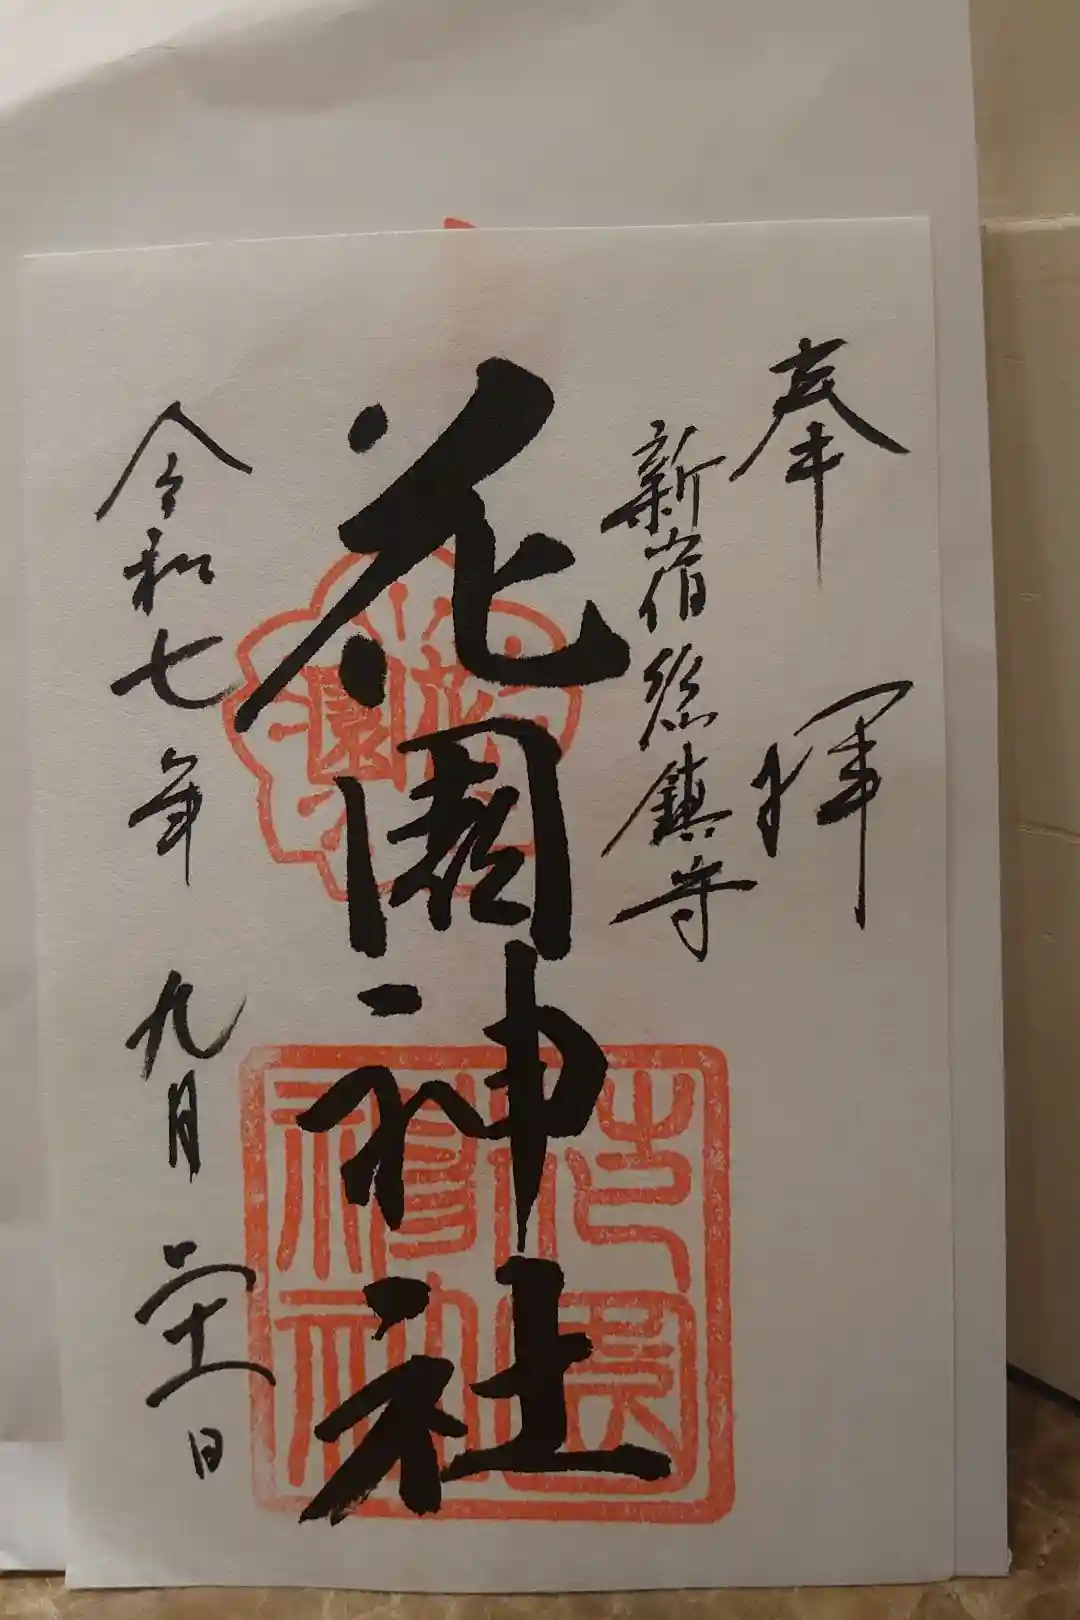 奉拝
新宿総鎮守
花園神社
令和七年九月二十一日
花園
花園神社